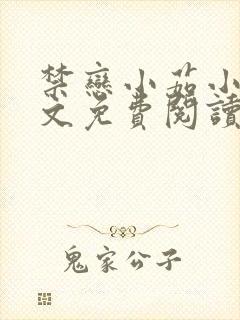 禁戀小茹小
文免費閱讀
鬼家公子